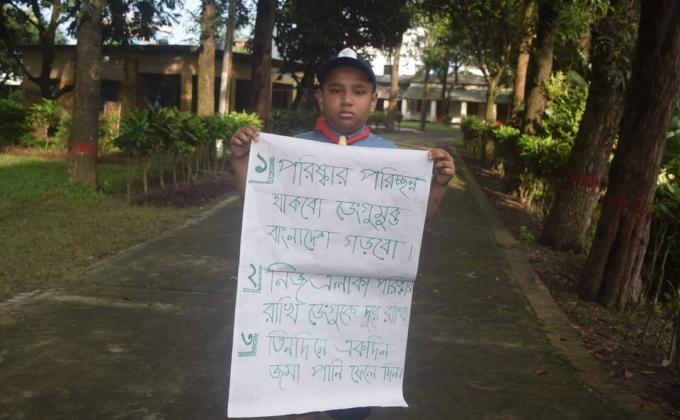 ১ পরিষ্কার পরিচ্ছন্ন
থাকবো ডেংগুমুক্ত
বাংলাদেশ গড়বো।
২ নিজ এলাকা পরিষ্কার
রাখি ডেংগুকে দূরে রাখি
৩ তিনদিনে একদিন
জমা পানি ফেলে দিন।